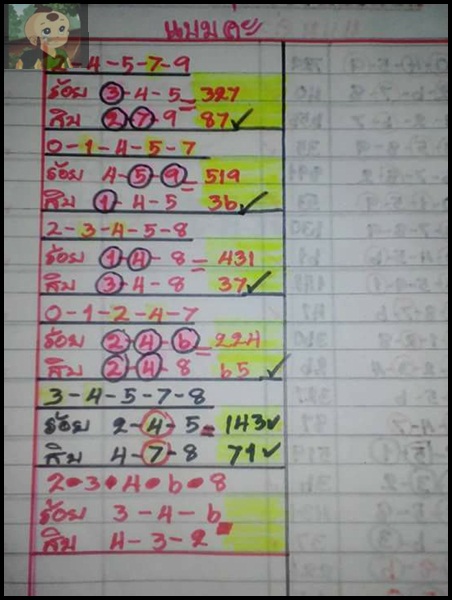 แบมคะ
2-4-5-7-9
ร้อย 3-4-5 = 327
สิบ 2-7-9 87 ✓
0-1-4-5-7
ร้อย 4-5-9 = 519
สิบ 1-4-5 36 ✓
2-3-4-5-8
ร้อย 1-4-8 = 431
สิบ 3-4-8 37 ✓
0-1-2-4-7
ร้อย 2-4-6 = 224
สิบ 2-4-8 65 ✓
3-4-5-7-8
ร้อย 2-4-5 = 143 ✓
สิบ 4-7-8 71 ✓
2-3-4-6-8
ร้อย 3-4-6
สิบ 4-3-2 =